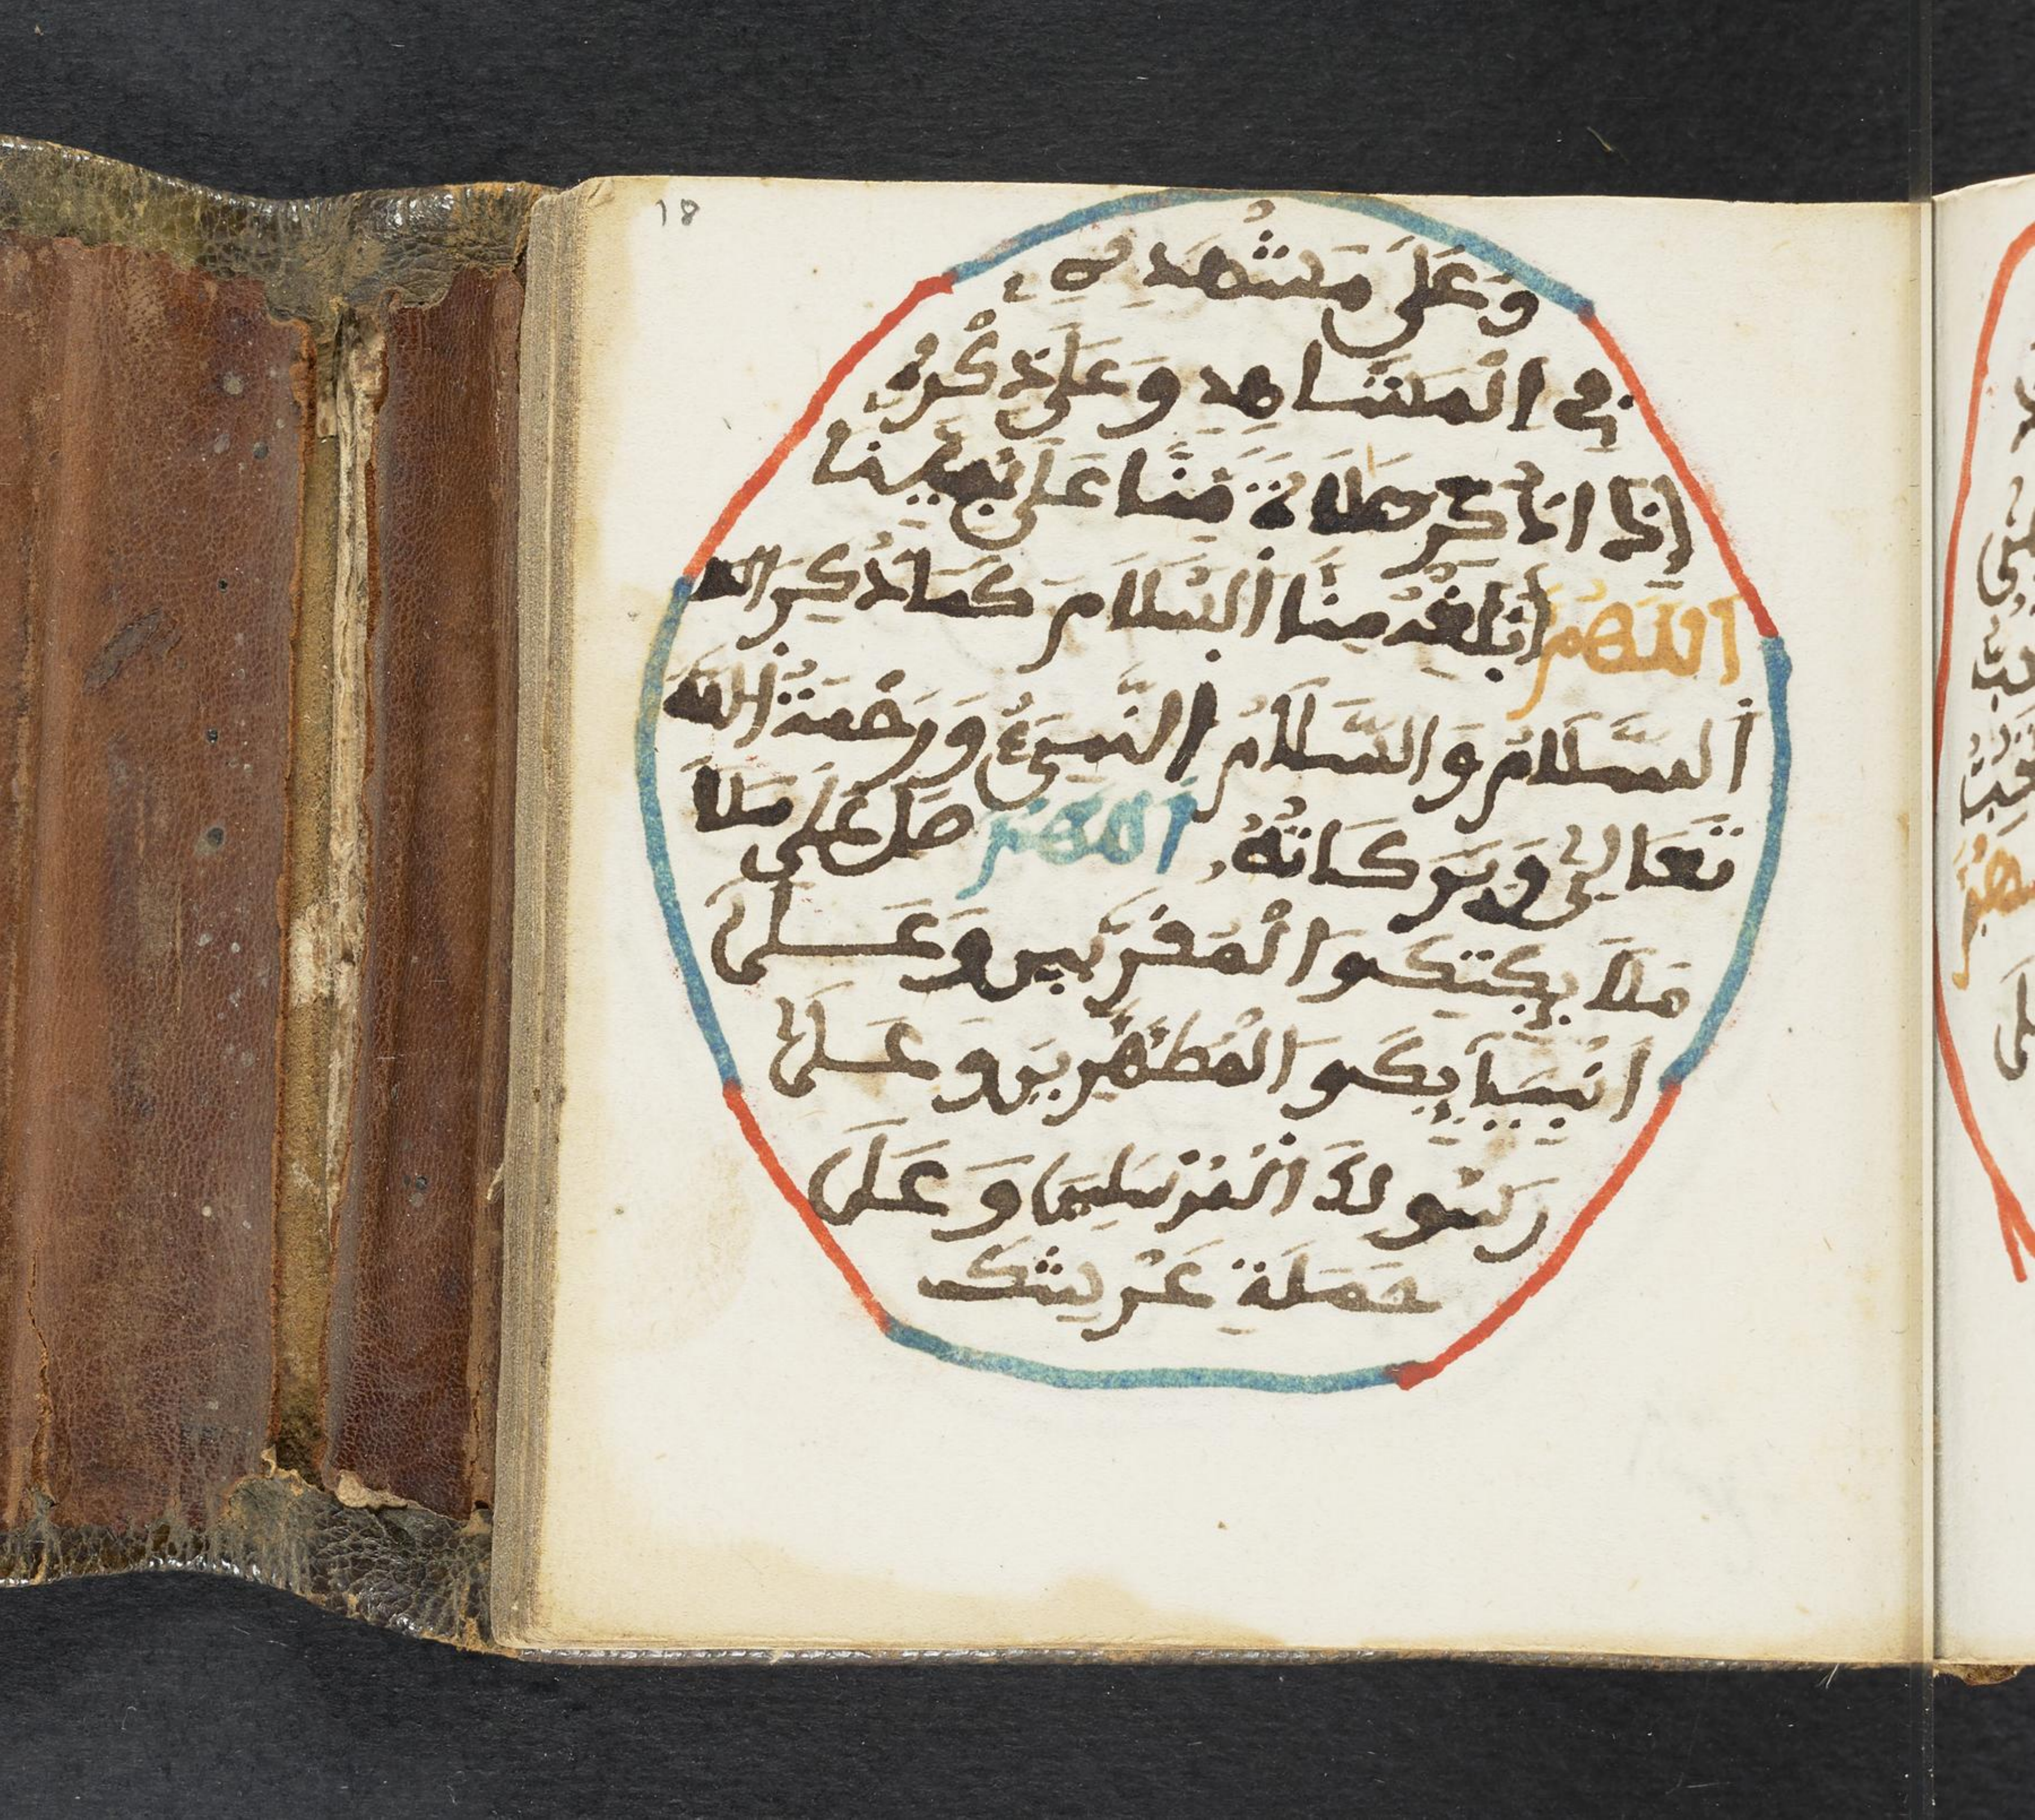 18
وَعَلَى مَشْهَدِهِ
فِي الْمَشَاهِدِ وَعَلَى ذِكْرِهِ
إِذَا اذُكِرَ صَلَاةً مِّنَّا عَلَى نَبِيِّنَا
اللَّهُمَّ أَبْلِغْهُ مِنَّا السَّلَامَ كَمَا ذُكِرَ الله
السَّلَامُ وَالسَّلَامُ النَّبِيءُ وَرَحْمَةُ اللَّه
تَعَالَى وَبَرَكَاتُهُ اللَّهُمَّ صَلِّ عَلَى مَلَا
مَلَايِكَتِكَ وَالْمُقَرَّبِين وَعَلَى
أَنْبِيَايِكَ وَالْمُطَهَّرِينَ وَعَلَى
رَسُولِكَ الْمُرْسَلِينَ وَعَلَى
حَمَلَةِ عَرْشِكَ